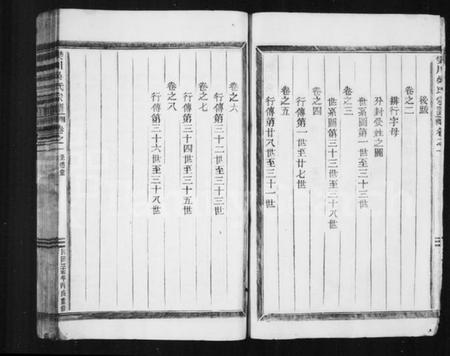 後跋
卷之二
排行字母
分封受姓之圖
世系圖第一世至三十三世
卷之三
世系圖第三十三世至三十八世
卷之四
行傳第一世至廿七世
卷之五
行傳第廿八世至三十一世
卷之六
行傳第三十二世至三十三世
卷之七
行傳第三十四世至三十五世
卷之八
行傳第三十六世至三十八世